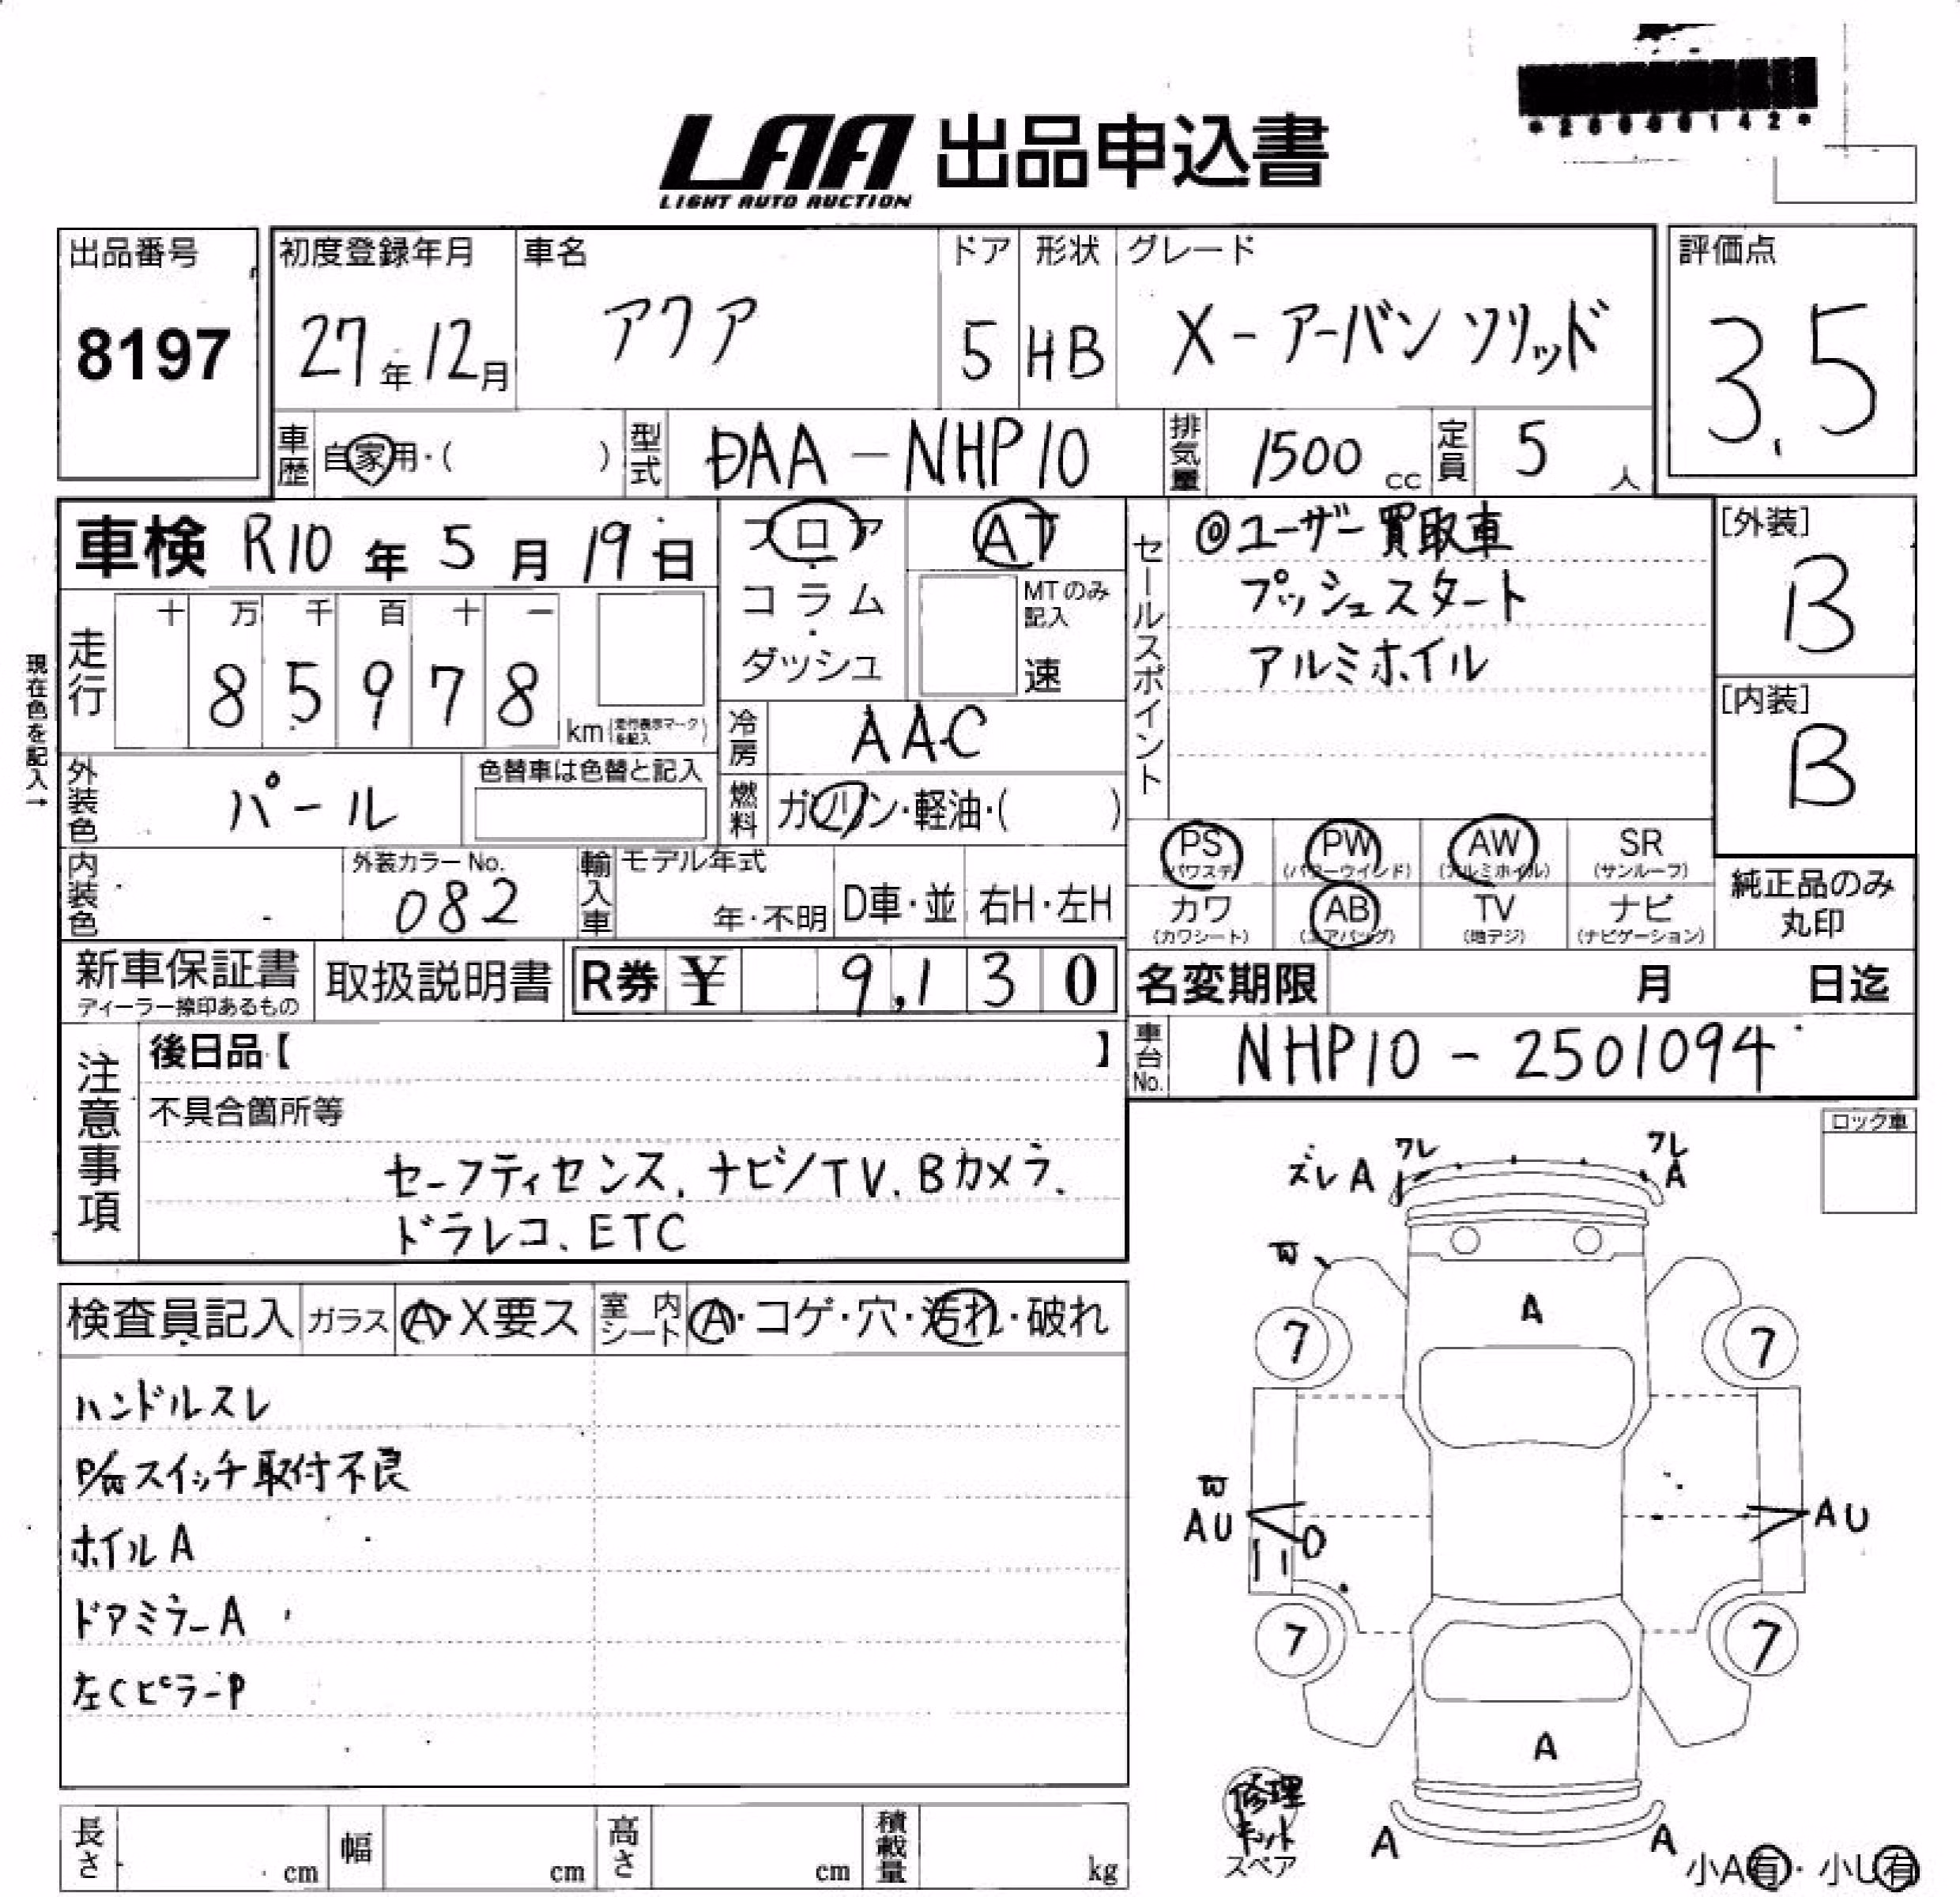 LAA 出品申込書
LIGHT AUTO AUCTION
出品番号
8197
初度登録年月
27年12月
車名
アクア
ドア
5
形状
HB
グレード
X-アーバンソリッド
評価点
3.5
車歴
自家用・( )
型式
DAA-NHP10
排気量
1500 cc
定員
5 人
車検 R10年5月19日
フロア
・
コラム
・
ダッシュ
AT
MTのみ
記入
速
現在色を記入→
走行
十 万 千 百 十 一
8 5 9 7 8
km (走行表示マークを記入)
冷房
AAC
燃料
ガソリン・軽油・( )
外装色
パール
色替車は色替と記入
内装色
外装カラーNo.
082
輸入車
モデル年式
年・不明
D車・並
右H・左H
セールスポイント
◎ユーザー買取車
プッシュスタート
アルミホイル
[外装]
B
[内装]
B
PS
(パワステ)
PW
(パワーウインド)
AW
(アルミホイル)
SR
(サンルーフ)
カワ
(カワシート)
AB
(エアバッグ)
TV
(地デジ)
ナビ
(ナビゲーション)
純正品のみ
丸印
新車保証書
ディーラー捺印あるもの
取扱説明書
R券 ¥ 9,130
名変期限 月 日迄
車台No.
NHP10-2501094
注意事項
後日品【 】
不具合箇所等
セーフティセンス、ナビ/TV、Bカメラ、
ドラレコ、ETC
ロック車
検査員記入
ガラス
A・X要ス
室内シート
A・コゲ・穴・汚れ・破れ
ハンドルスレ
スイッチ取付不良
ホイルA
ドアミラーA
左CピラーP
ズレ A ワレ
ワレ
A
A
7
7
AU
AU
7
7
A
A
A
修理
キット
スペア
小A有・小U有
長さ cm
幅 cm
高さ cm
積載量 kg